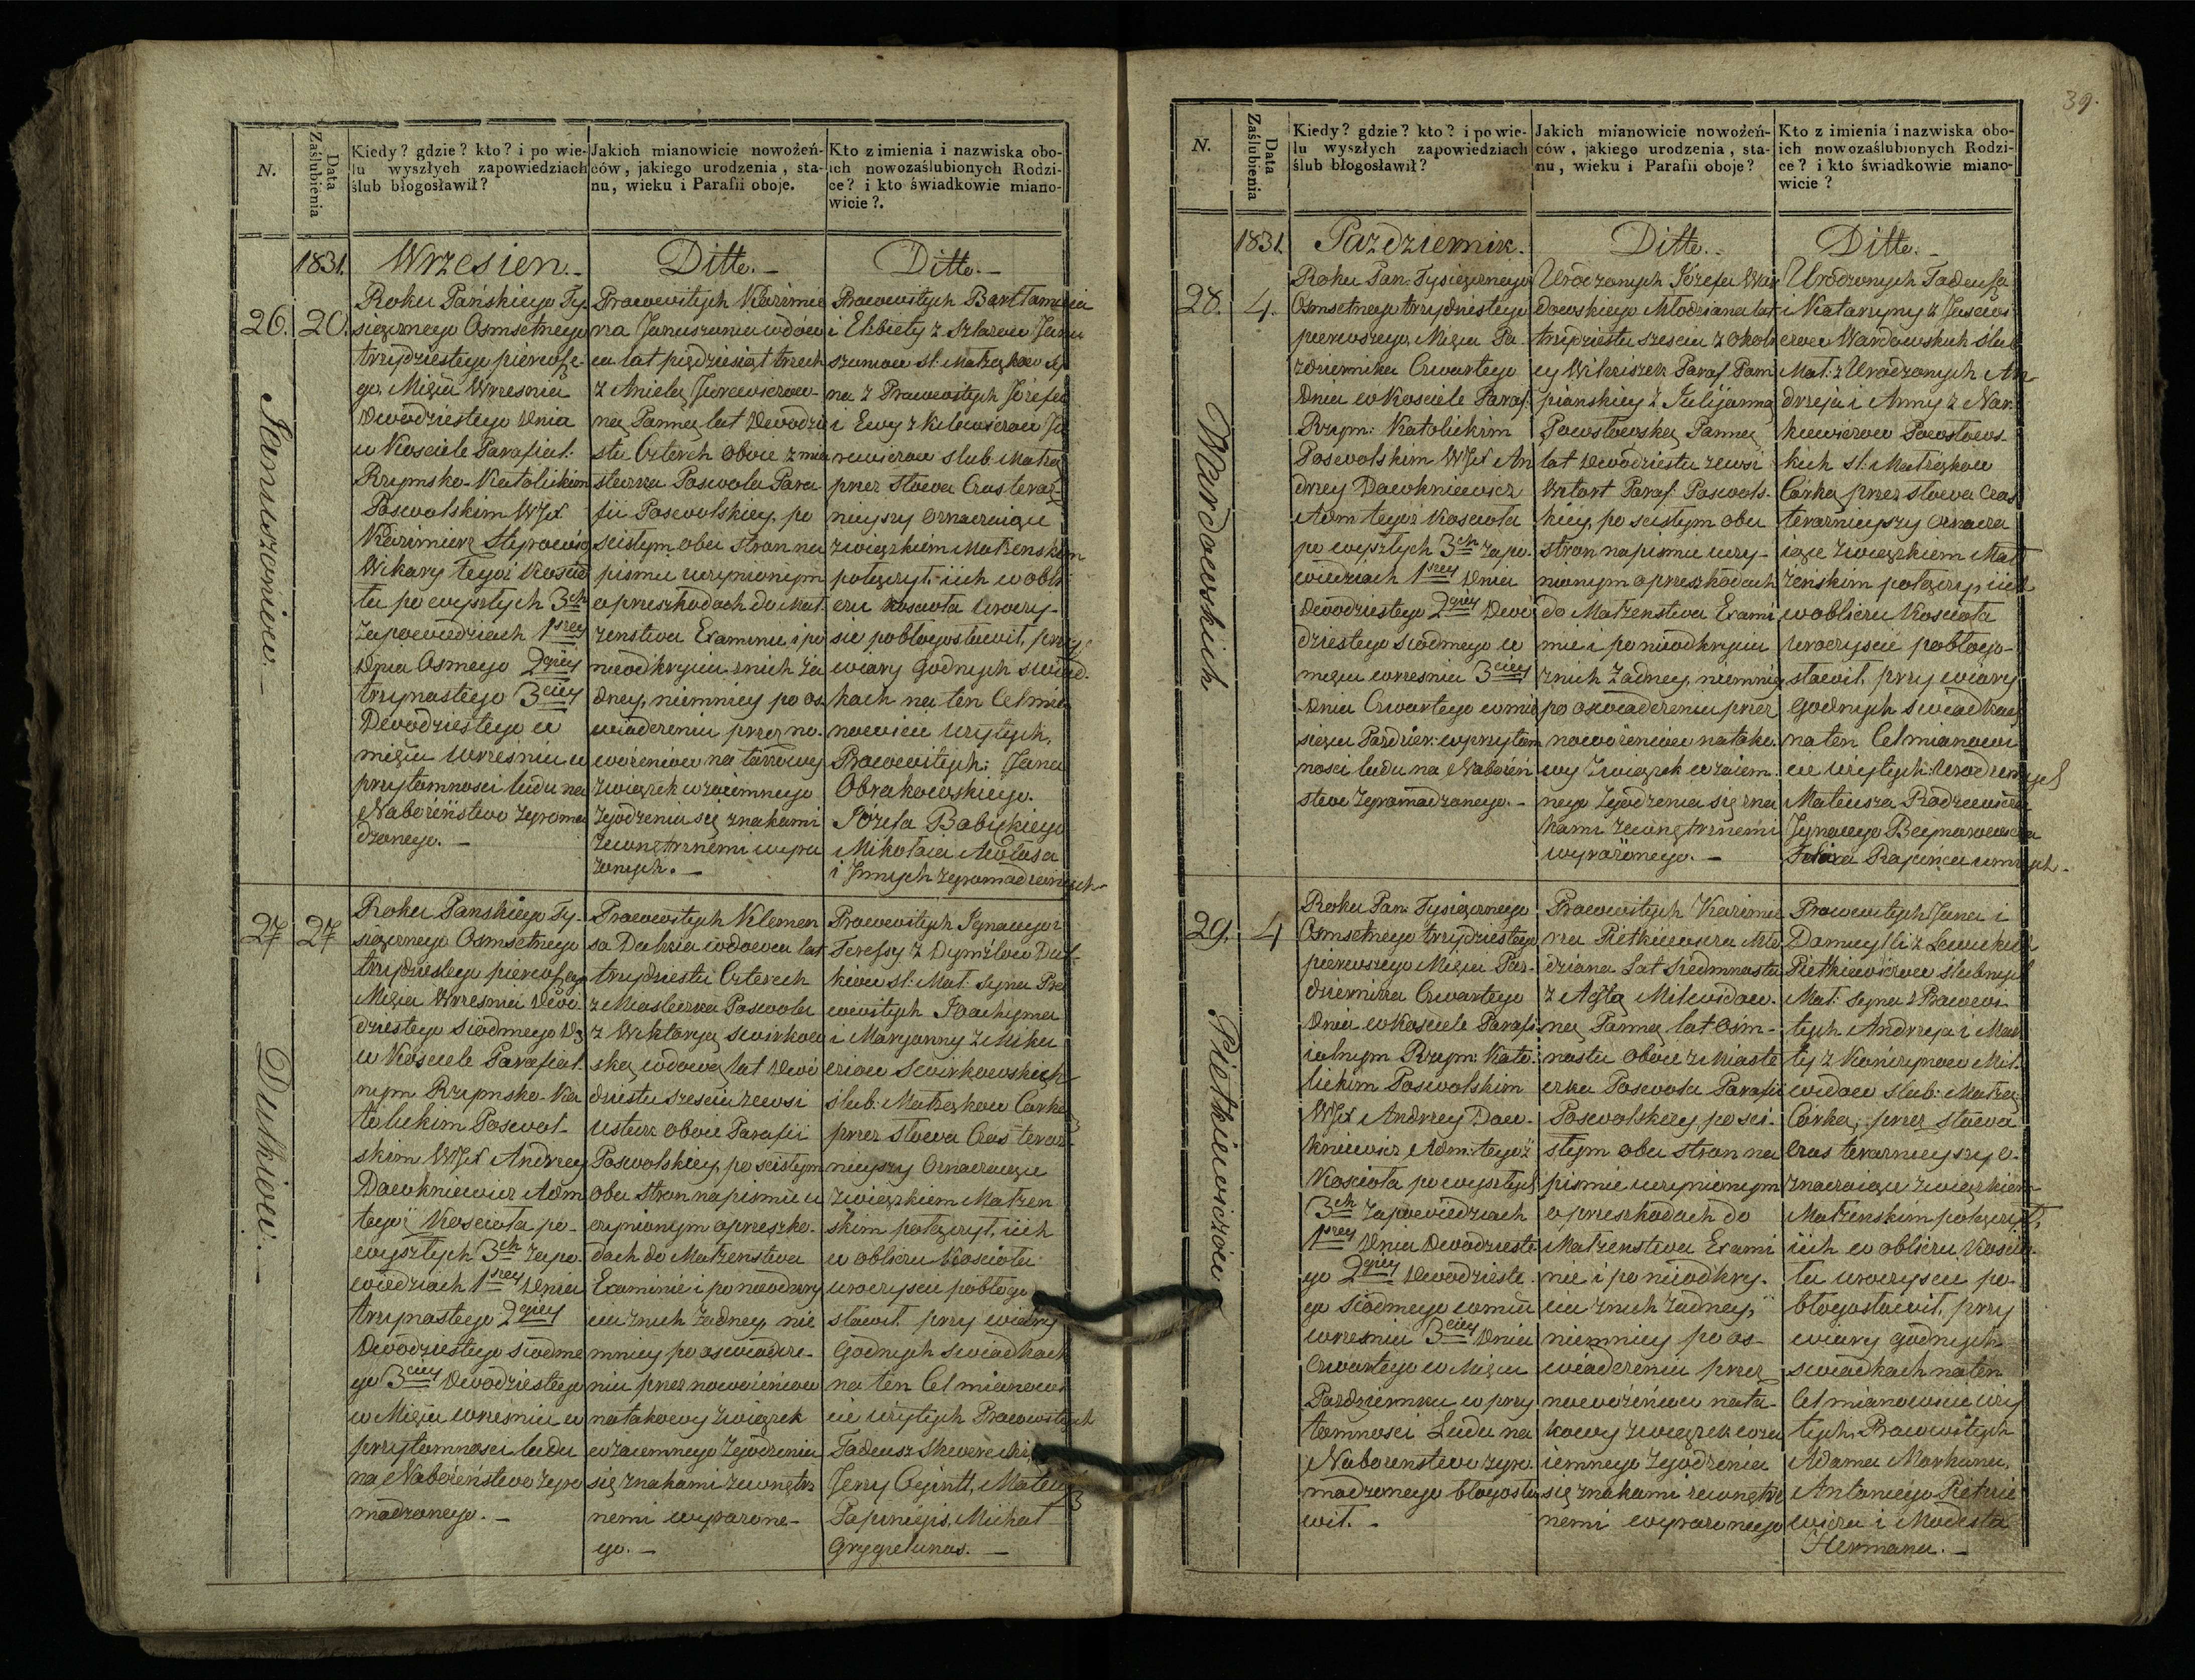 N.
Data Zaślubienia
Kiedy? gdzie? kto? i po wie-
lu wyszłych zapowiedziach
ślub błogosławił?
Jakich mianowicie nowożeń-
ców, jakiego urodzenia, sta-
nu, wieku i Parafii oboje.
Kto z imienia i nazwiska obo-
ich nowozaślubionych Rodzi-
ce? i kto świadkowie miano-
wicie?.
1831.
26.
20.
Januszaniew.
Wrzesien.
Roku Pańskiego Ty-
siącznego Osmsetnego
trzydziestego pierwsze-
go, Mięcu Wrzesniu
Dwódziestego Dnia
w Kosciele Parafial:
Rzymsko-Katolickim
Poswolskim WJX
Kazimierz
Wikary tegoż Koscio
ła po wyszłych 3ch
zapowiedziach 1szey
Dnia Osmego 2giey
trzynastego 3ciey
Dwódziestego w
mięcu wrzesniu w
przytomnosci ludu na
Nabożeństwo zgroma
dzonego.
Ditto.
Pracowitych Kazimie
rza Januszania wdów
ca lat pięcdziesiąt trzech
z Anielą Jurewiczow-
ną Panną lat Dwodzie
stu Czterech oboie z mia
steczka Poswola Para
fii Poswolskiey, po
scisłym obu stron na
pismie uczynionym
o przeszkodach do Mał
żenstwa Examinie i po
nieodkryciu z nich ża
dney, niemniey po os
wiadczeniu przez no-
wożeńców na takowy
związek wzaiemnego
zgodzenia się znakami
zewnętrznemi wyra
żonych.
Ditto.
Pracowitych Bartłomieia
i Elżbiety z Szłazow Janu
szaniow sł. Małżąkow Sy
na z Pracowitych Józefa
i Ewy z Kilewiczow Ju
rewiczow slub: Małżą
przez słowa Czas teraz-
nieyszy oznaczaiące
związkiem Małżenskim
połączył, iich w obli
czu Koscioła uroczy-
scie pobłogosławił, przy
wiary godnych swiad-
kach na ten Cel mia
nowicie użytych,
Pracowitych: Jana
Obrakowskiego.
Józefa Babickiego
Mikołaia Awłasa
i Jnnych zgromadzonych
27
27
Dulkiow.
Roku Panskiego Ty-
siącznego Osmsetnego
trzydziestego pierwszego
Mięcu Wrzesniu Dwó
dziestego Siodmego D
w Kosciele Parafial-
nym Rzymsko-Ka
tolickim Poswol-
skim WJX Andrzey
Dawkniewicz Adm
tegoż Koscioła po-
wyszłych 3ch zapo-
wiedziach 1szey Dnia
trzynastego 2giey
Dwódziestego siodme
go 3ciey Dwódziestego
w Mięcu wrzesniu w
przytomnosci ludu
na Nabożeństwo zgro
madzonego.
Pracowitych Klemen
sa Dulkia wdowca lat
trzydziestu Czterech
z Miasteczka Poswola
z Wiktoryą Swirkow
ską wdową lat Dwó
dziestu szesciu z wsi
Ustuk oboie Parafii
Poswolskiey, po scisłym
obu stron na pismie u
czynionym o przeszko-
dach do Małżenstwa
Examinie i po nieodkry
ciu z nich żadney, nie
mniey po oswiadcze-
niu przez nowożeńców
na takowy związek
wzaiemnego zgodzenia
się znakami zewnętrz
nemi wyrażone-
go.
Pracowitych Jgnacego i
Teressy z Dymżłow Dul-
kiow sł: Mał: Syna Pra
cowitych Joachyma
i Maryanny z Miku
ciow Swirkowskich
slub: Małżąkow Córką
przez słowa Czas teraz-
nieyszy oznaczaiące
związkiem Małżen
skim połączył, iich
w obliczu Koscioła
uroczyscie pobłogo
sławił, przy wiary
godnych swiadkach
na ten Cel mianowi
cie użytych Pracowitych
Tadeusz
Jerzy
Michał
Grygielunas.
39.
N.
Data Zaślubienia
Kiedy? gdzie? kto? i po wie-
lu wyszłych zapowiedziach
ślub błogosławił?
Jakich mianowicie nowożeń-
ców, jakiego urodzenia, sta-
nu, wieku i Parafii oboje?
Kto z imienia i nazwiska obo-
ich nowozaślubionych Rodzi-
ce? i kto świadkowie miano-
wicie?
1831.
28.
4.
Wardowskich
Pazdziernik.
Roku Pan: Tysiącznego
Osmsetnego trzydziestego
pierwszego, Mięcu Pa-
zdziernika Czwartego
Dnia w Kosciele Paraf:
Rzym: Katolickim
Poswolskim WJX An
drzey Dawkniewicz
Adm tegoż Koscioła
po wyszłych 3ch zapo-
wiedziach 1szey Dnia
Dwódziestego 2giey Dwó
dziestego siodmego w
mięcu wrzesniu 3ciey
Dnia Czwartego w mie
siącu Pazdzier: w przytom
nosci ludu na Nabożeń
stwo zgromadzonego.
Ditto.
Urodzonych Józefa War
dowskiego Młodziana lat
trzydziestu szesciu z Okoli
cy Wikniszek Paraf. Pom
pianskiey z Julijanną
Powstowską Panną
lat Dwódziestu z wsi
Wrtort Paraf: Poswols-
kiey, po scisłym obu
stron na pismie uczy-
nionym o przeszkodach
do Małżenstwa Exami
nie i po nieodkryciu
z nich żadney, niemniey
po oswiadczeniu przez
nowożeńców na tako-
wy związek wzaiem-
nego zgodzenia się zna
kami zewnętrznemi
wyrażonego.
Ditto.
Urodzonych Tadeusza
i Katarzyny z
Wardowskich slub
Mał: z Urodzonych An
drzeja i Anny z Nar-
kiewiczow Powstows-
kich sł: Małżąkow
Córką, przez słowa Czas
teraznieyszy oznacza
iące związkiem Mał
żenskim połączył, iich
w obliczu Koscioła
uroczyscie pobłogo-
sławił, przy wiary
godnych swiadkach
na ten Cel mianowi
cie użytych: Urodzonych
Mateusza Radzewicza
Jgnacego Beynarowicza
29.
4
Pietkiewiczow
Roku Pan: Tysiącznego
Osmsetnego trzydziestego
pierwszego Mięcu Paz-
dziernika Czwartego
Dnia w Kosciele Parafi
ialnym Rzym: Kato-
lickim Poswolskim
WJX Andrzey Daw-
kniewicz Adm: tegoż
Koscioła po wyszłych
3ch zapowiedziach
1szey Dnia Dwódzieste
go 2giey Dwódzieste-
go siodmego w mięcu
wrzesniu 3ciey Dnia
Czwartego w Mięcu
Pazdziernku w przy
tomnosci Ludu na
Nabożenstwo zgro
madzonego błogosła
wił.
Pracowitych Kazimie
rza Pietkiewicza Mło
dziana Lat siedmnastu
z Agtą Milwidow-
ną Panną lat Osm-
nastu oboie z Miaste
czka Poswola Parafii
Poswolskiey, po sci-
słym obu stron na
pismie uczynionym
o przeszkodach do
Małżenstwa Exami
nie i po nieodkry-
ciu z nich żadney,
niemniey po os-
wiadczeniu przez
nowożeńców na ta-
kowy związek wza
iemnego zgodzenia
się znakami zewnętrz
nemi wyrażonego
Pracowitych Jana i
Pietkiewiczow slubnych
Mał: Syna z Pracowi
tych Andrzeja i Mar
ty z Mil-
widow slub: Małżą
Córką, przez słowa
Czas teraznieyszy o-
znaczaiące związkiem
Małżenskim połączył,
iich w obliczu Koscio-
ła uroczyscie po-
błogosławił, przy
wiary godnych
swiadkach na ten
Cel mianowicie uży
tych. Pracowitych
Adama Markuna,
Antoniego Pietkie
wicza i Modesta
Hermana.